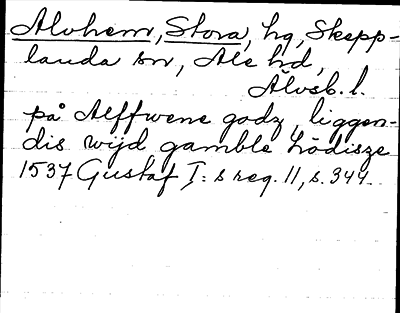 Alvhem, Stora, hg, Skepp-
landa sn, Ale hd,
Älvsb. l.
på Alffwene godz liggen-
dis wijd gamble Lödisze
1537 Gustaf I:s reg. 11, s. 344.